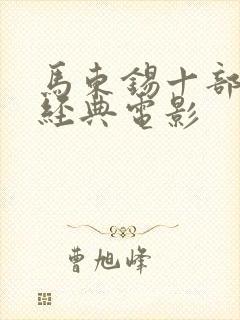 馬東錫十部
經典電影
曹旭峰